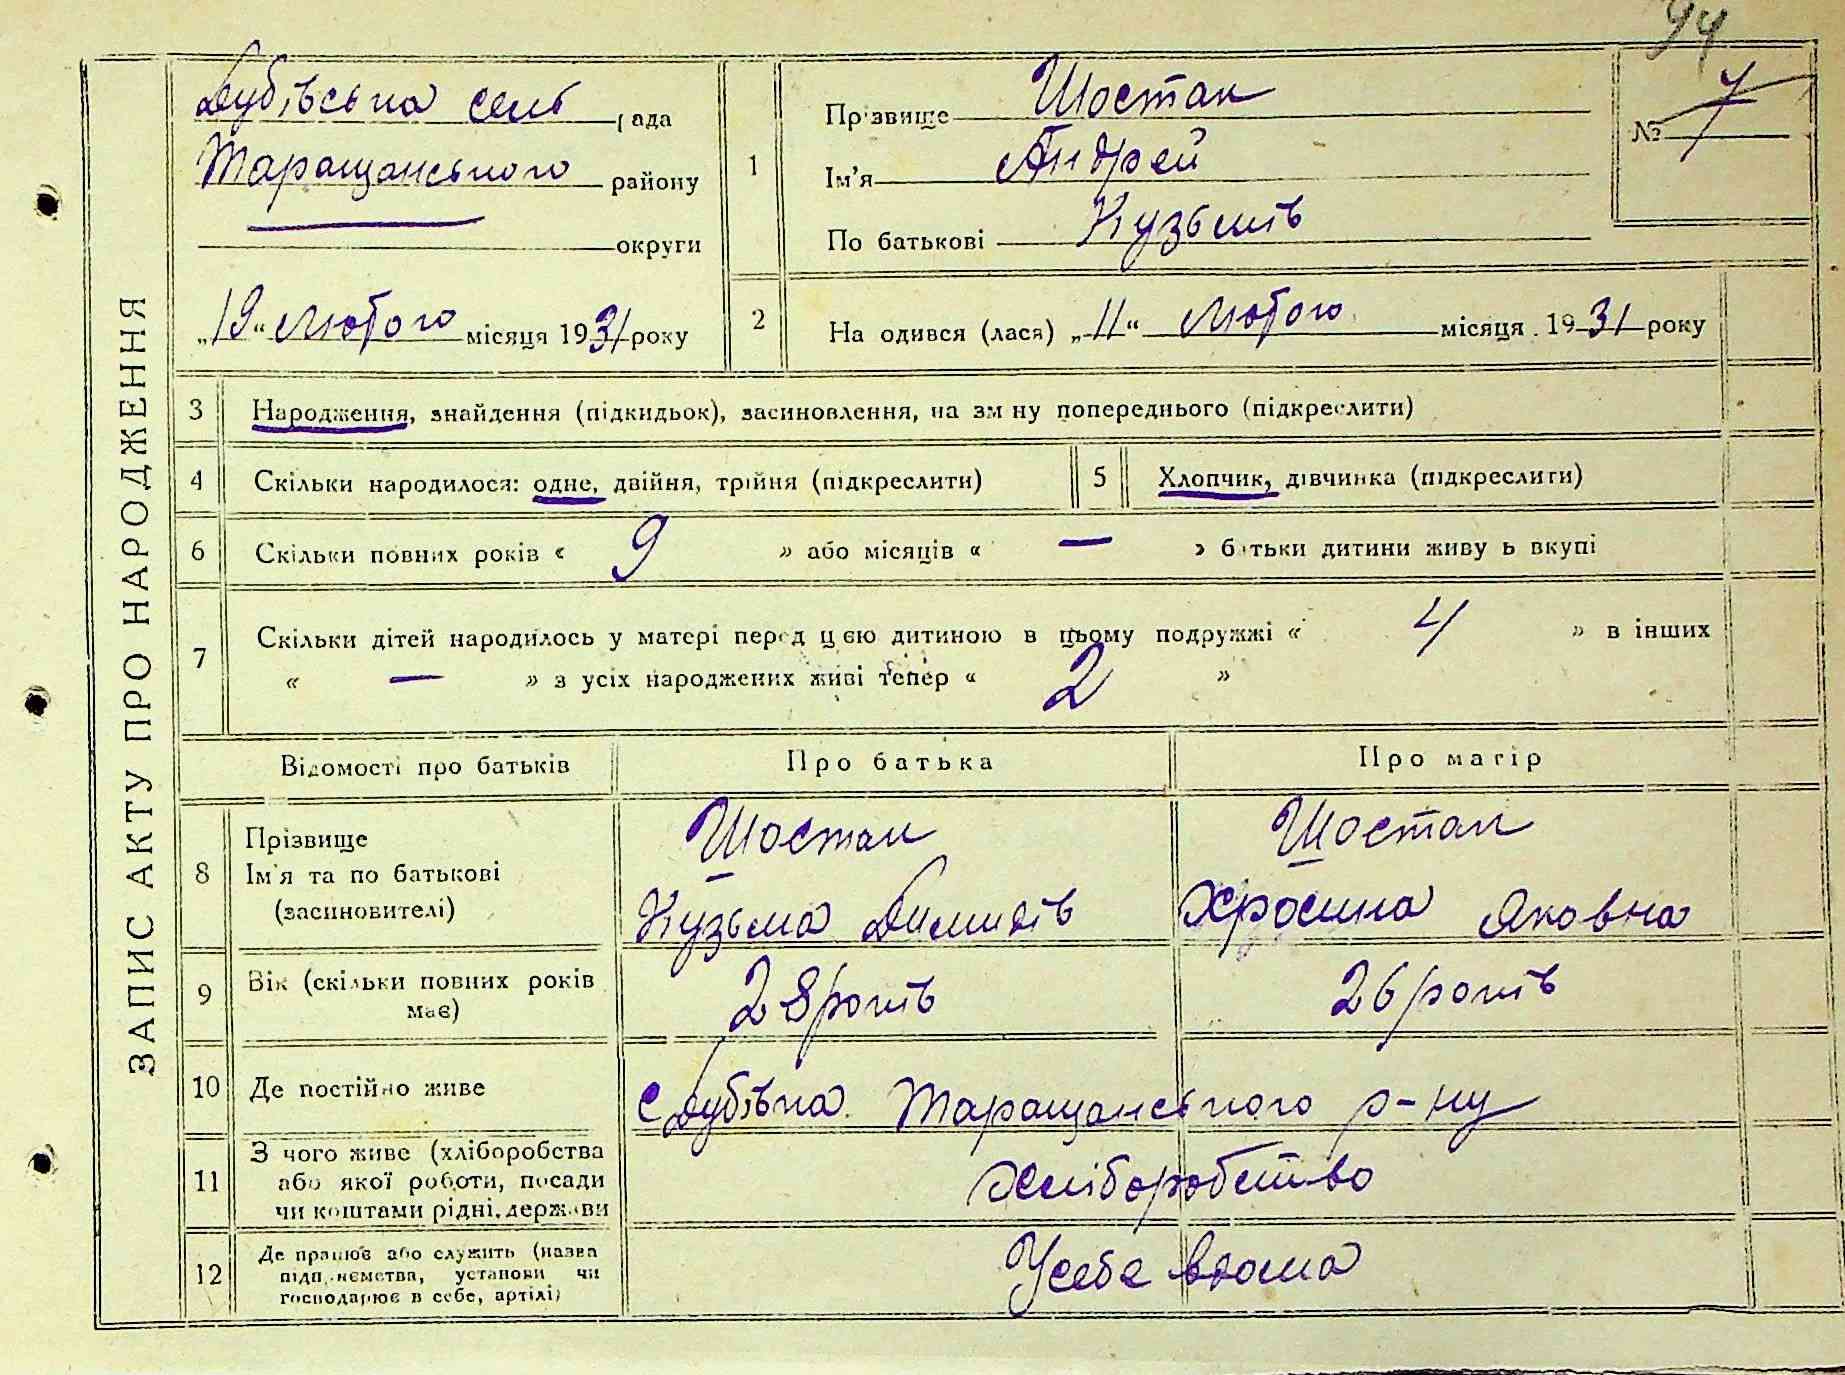 94
ЗАПИС АКТУ ПРО НАРОДЖЕННЯ
Дубівська сель рада
Таращанського району
округи
„19“ Лютого місяця 1931 року
1
Прізвище Шостак
Ім'я Андрей
По батькові Кузьмів
№ 7
2
На одився (лася) „11“ Лютого місяця 1931 року
3 Народження, знайдення (підкидьок), засиновлення, на зм ну попереднього (підкреслити)
4 Скільки народилося: одне, двійня, трійня (підкреслити)
5 Хлопчик, дівчинка (підкреслити)
6 Скільки повних років « 9 » або місяців « — » батьки дитини живу ь вкупі
7 Скільки дітей народилось у матері перед цією дитиною в цьому подружжі « 4 » в інших
« — » з усіх народжених живі тепер « 2 »
Відомості про батьків Про батька Про матір
8 Прізвище
Ім'я та по батькові
(засиновителі)
Шостак
Кузьма Демидів
Шостак
Хросина Яковна
9 Вік (скільки повних років
має)
28 років
26 років
10 Де постійно живе
с Дубівка Таращанського р-ну
11 З чого живе (хліборобства
або якої роботи, посади
чи коштами рідні, держави
Хліборобство
12 Де працює або служить (назва
підп иємства, установи чи
господарює в себе, артілі)
У себе вдома